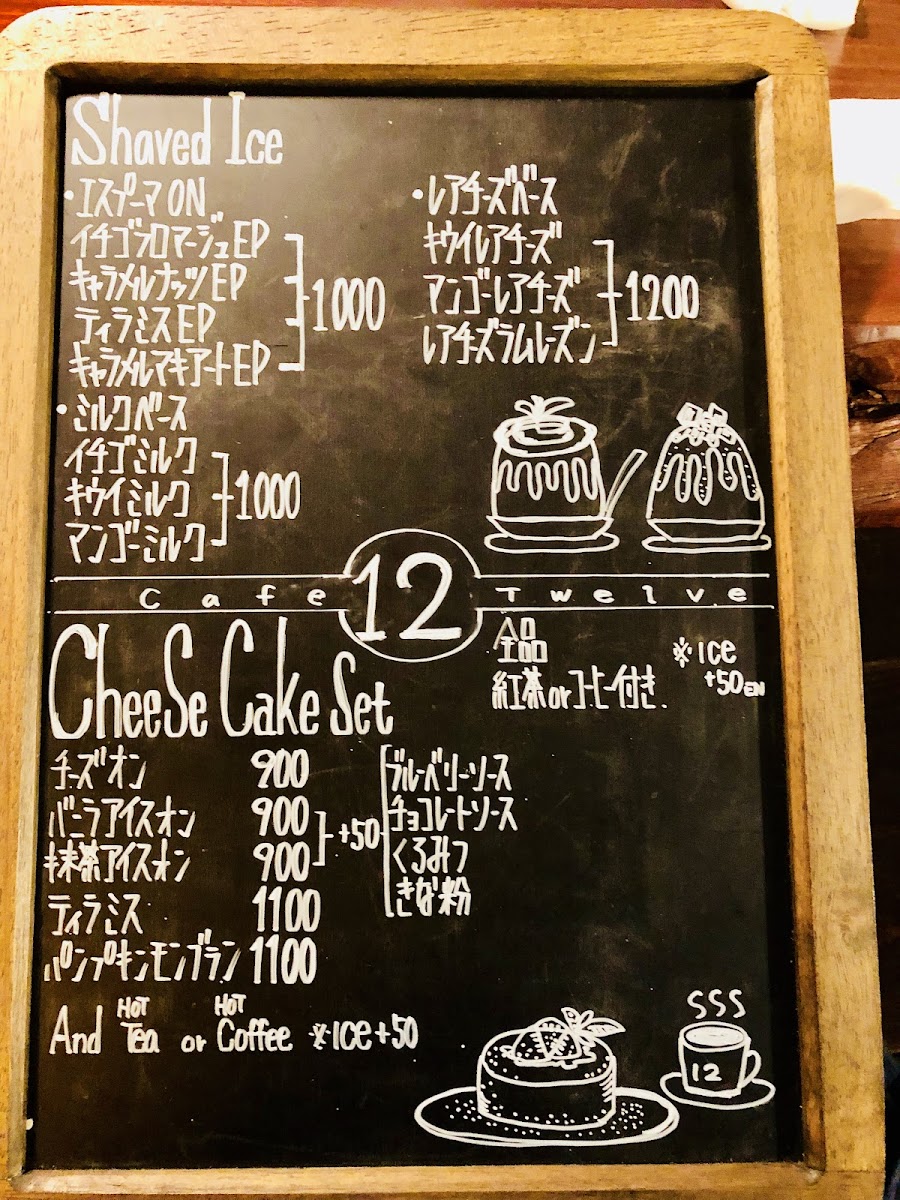 Shaved Ice
・エスプーマON
イチゴフロマージュEP
キャラメルナッツEP
ティラミスEP
キャラメルマキアートEP
1000
・ミルクベース
イチゴミルク
キウイミルク
マンゴーミルク
1000
・レアチーズベース
キウイレアチーズ
マンゴーレアチーズ
レアチーズラムレーズン
1200
Cafe 12 Twelve
全品
紅茶orコーヒー付き.
※ice
+50EN
CheeSe Cake Set
チーズオン 900
バニラアイスオン 900
抹茶アイスオン 900
+50
ブルーベリーソース
チョコレートソース
くるみっ
きな粉
ティラミス 1100
パンプキンモンブラン 1100
And HOT Tea or HOT Coffee ※ice+50
SSS
12